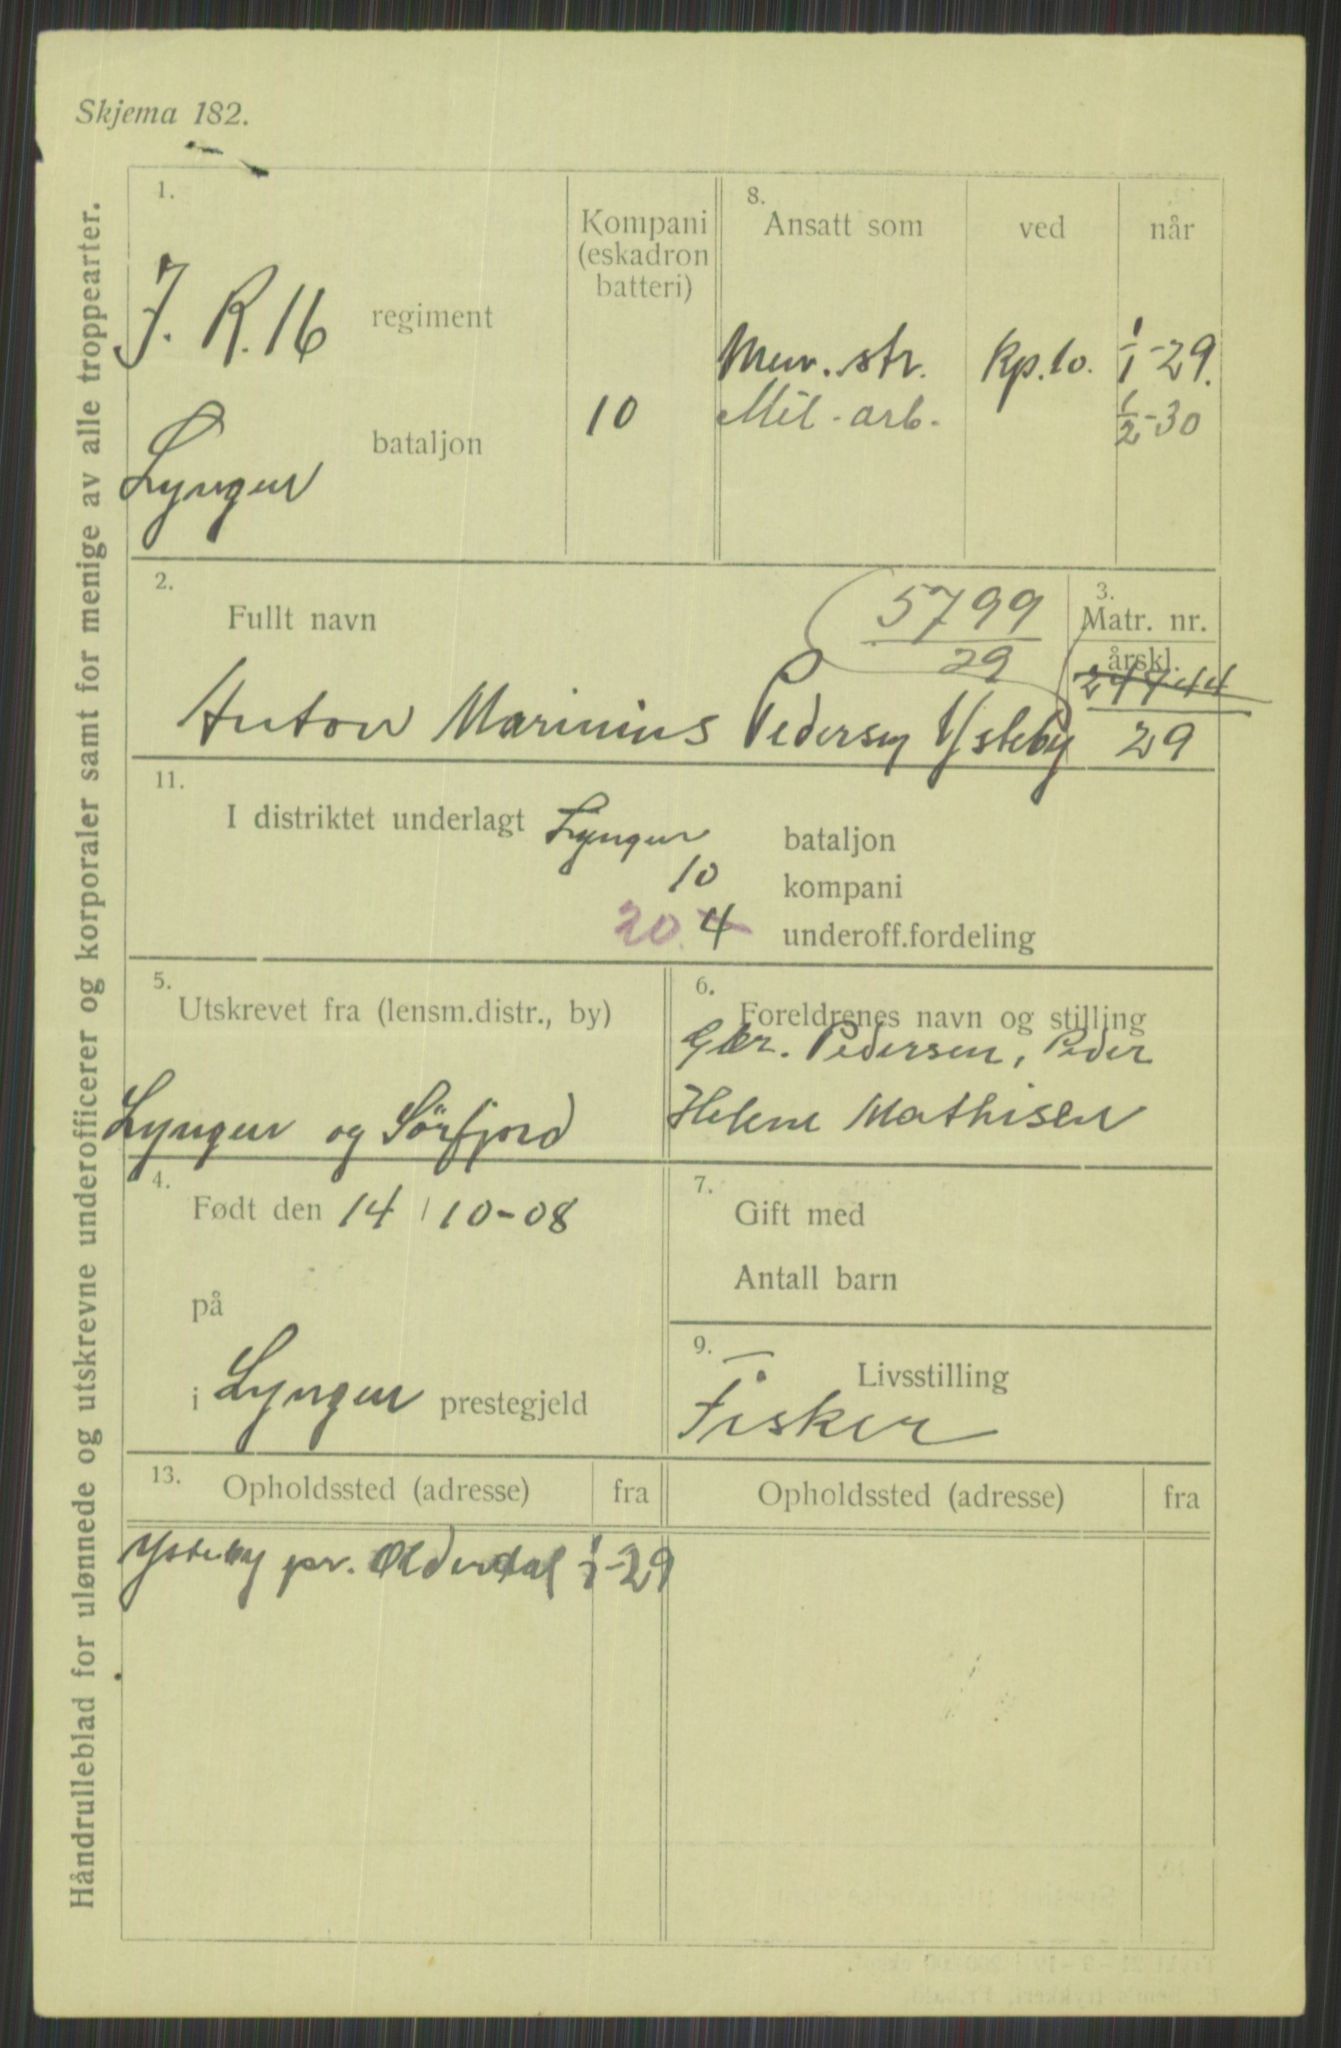 Skjema 182.
Håndrulleblad for ulønnede og utskrevne underofficerer og korporaler samt for menige av alle troppearter.
1.
J. R. 16 regiment
Lyngen bataljon
Kompani
(eskadron
batteri)
10
8.
Ansatt som ved når
Men. str. Kp. 10. 1/1-29.
Mil-arb. 1/2-30
2.
Fullt navn
5799
29
Anton Marinius Pedersen Ysteby
3.
Matr. nr.
årskl.
24944
29
11.
I distriktet underlagt Lyngen bataljon
10 kompani
20. 4 underoff.fordeling
5.
Utskrevet fra (lensm.distr., by)
Lyngen og Sörfjord
6.
Foreldrenes navn og stilling
Gbr. Pedersen, Peder
Helene Mathisen
4.
Født den 14/10-08
på
i Lyngen prestegjeld
7.
Gift med
Antall barn
9.
Livsstilling
Fisker
13.
Opholdssted (adresse) fra Opholdssted (adresse) fra
Ysteby pr. Olderdal 1/1-29